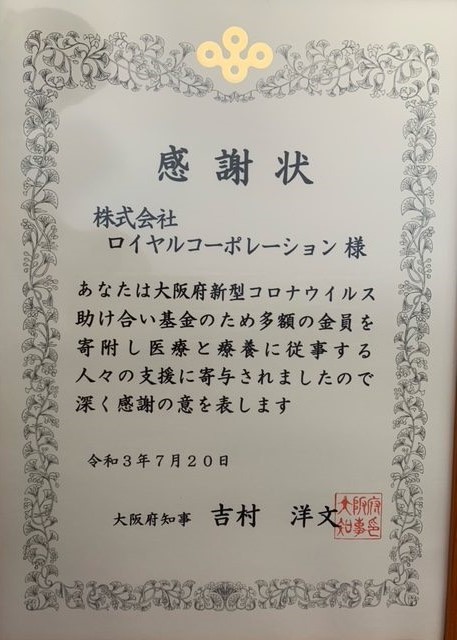 感謝状
株式会社
ロイヤルコーポレーション 様
あなたは大阪府新型コロナウイルス
助け合い基金のため多額の金員を
寄附し医療と療養に従事する
人々の支援に寄与されましたので
深く感謝の意を表します
令和3年7月20日
大阪府知事 吉村 洋文
大阪府
知事印